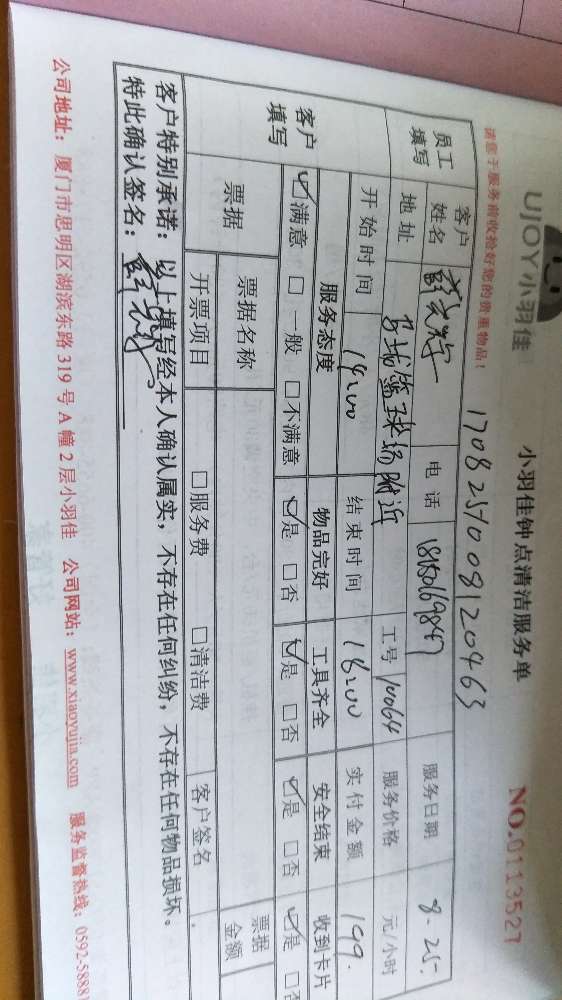 UJOY小羽佳 小羽佳钟点清洁服务单 NO.0113527
请您于服务前收拾好您的贵重物品! 1708251008120463
员工填写 客户姓名 电话 18150169847 服务日期 8.25.
地址 篮球场附近 工号 10064 服务价格 元/小时
开始时间 14:00 结束时间 18:00 实付金额 199.
客户填写 服务态度 物品完好 工具齐全 安全结束 收到卡片
☑满意 □一般 □不满意 ☑是 □否 ☑是 □否 ☑是 □否 ☑是 □否
票据 票据名称 票据金额
开票项目 □服务费 □清洁费 客户签名
客户特别承诺:以上填写经本人确认属实,不存在任何纠纷,不存在任何物品损坏。
特此确认签名:
公司地址:厦门市思明区湖滨东路319号A幢2层小羽佳 公司网站:www.xiaoyujia.com 服务监督热线:0592-58881